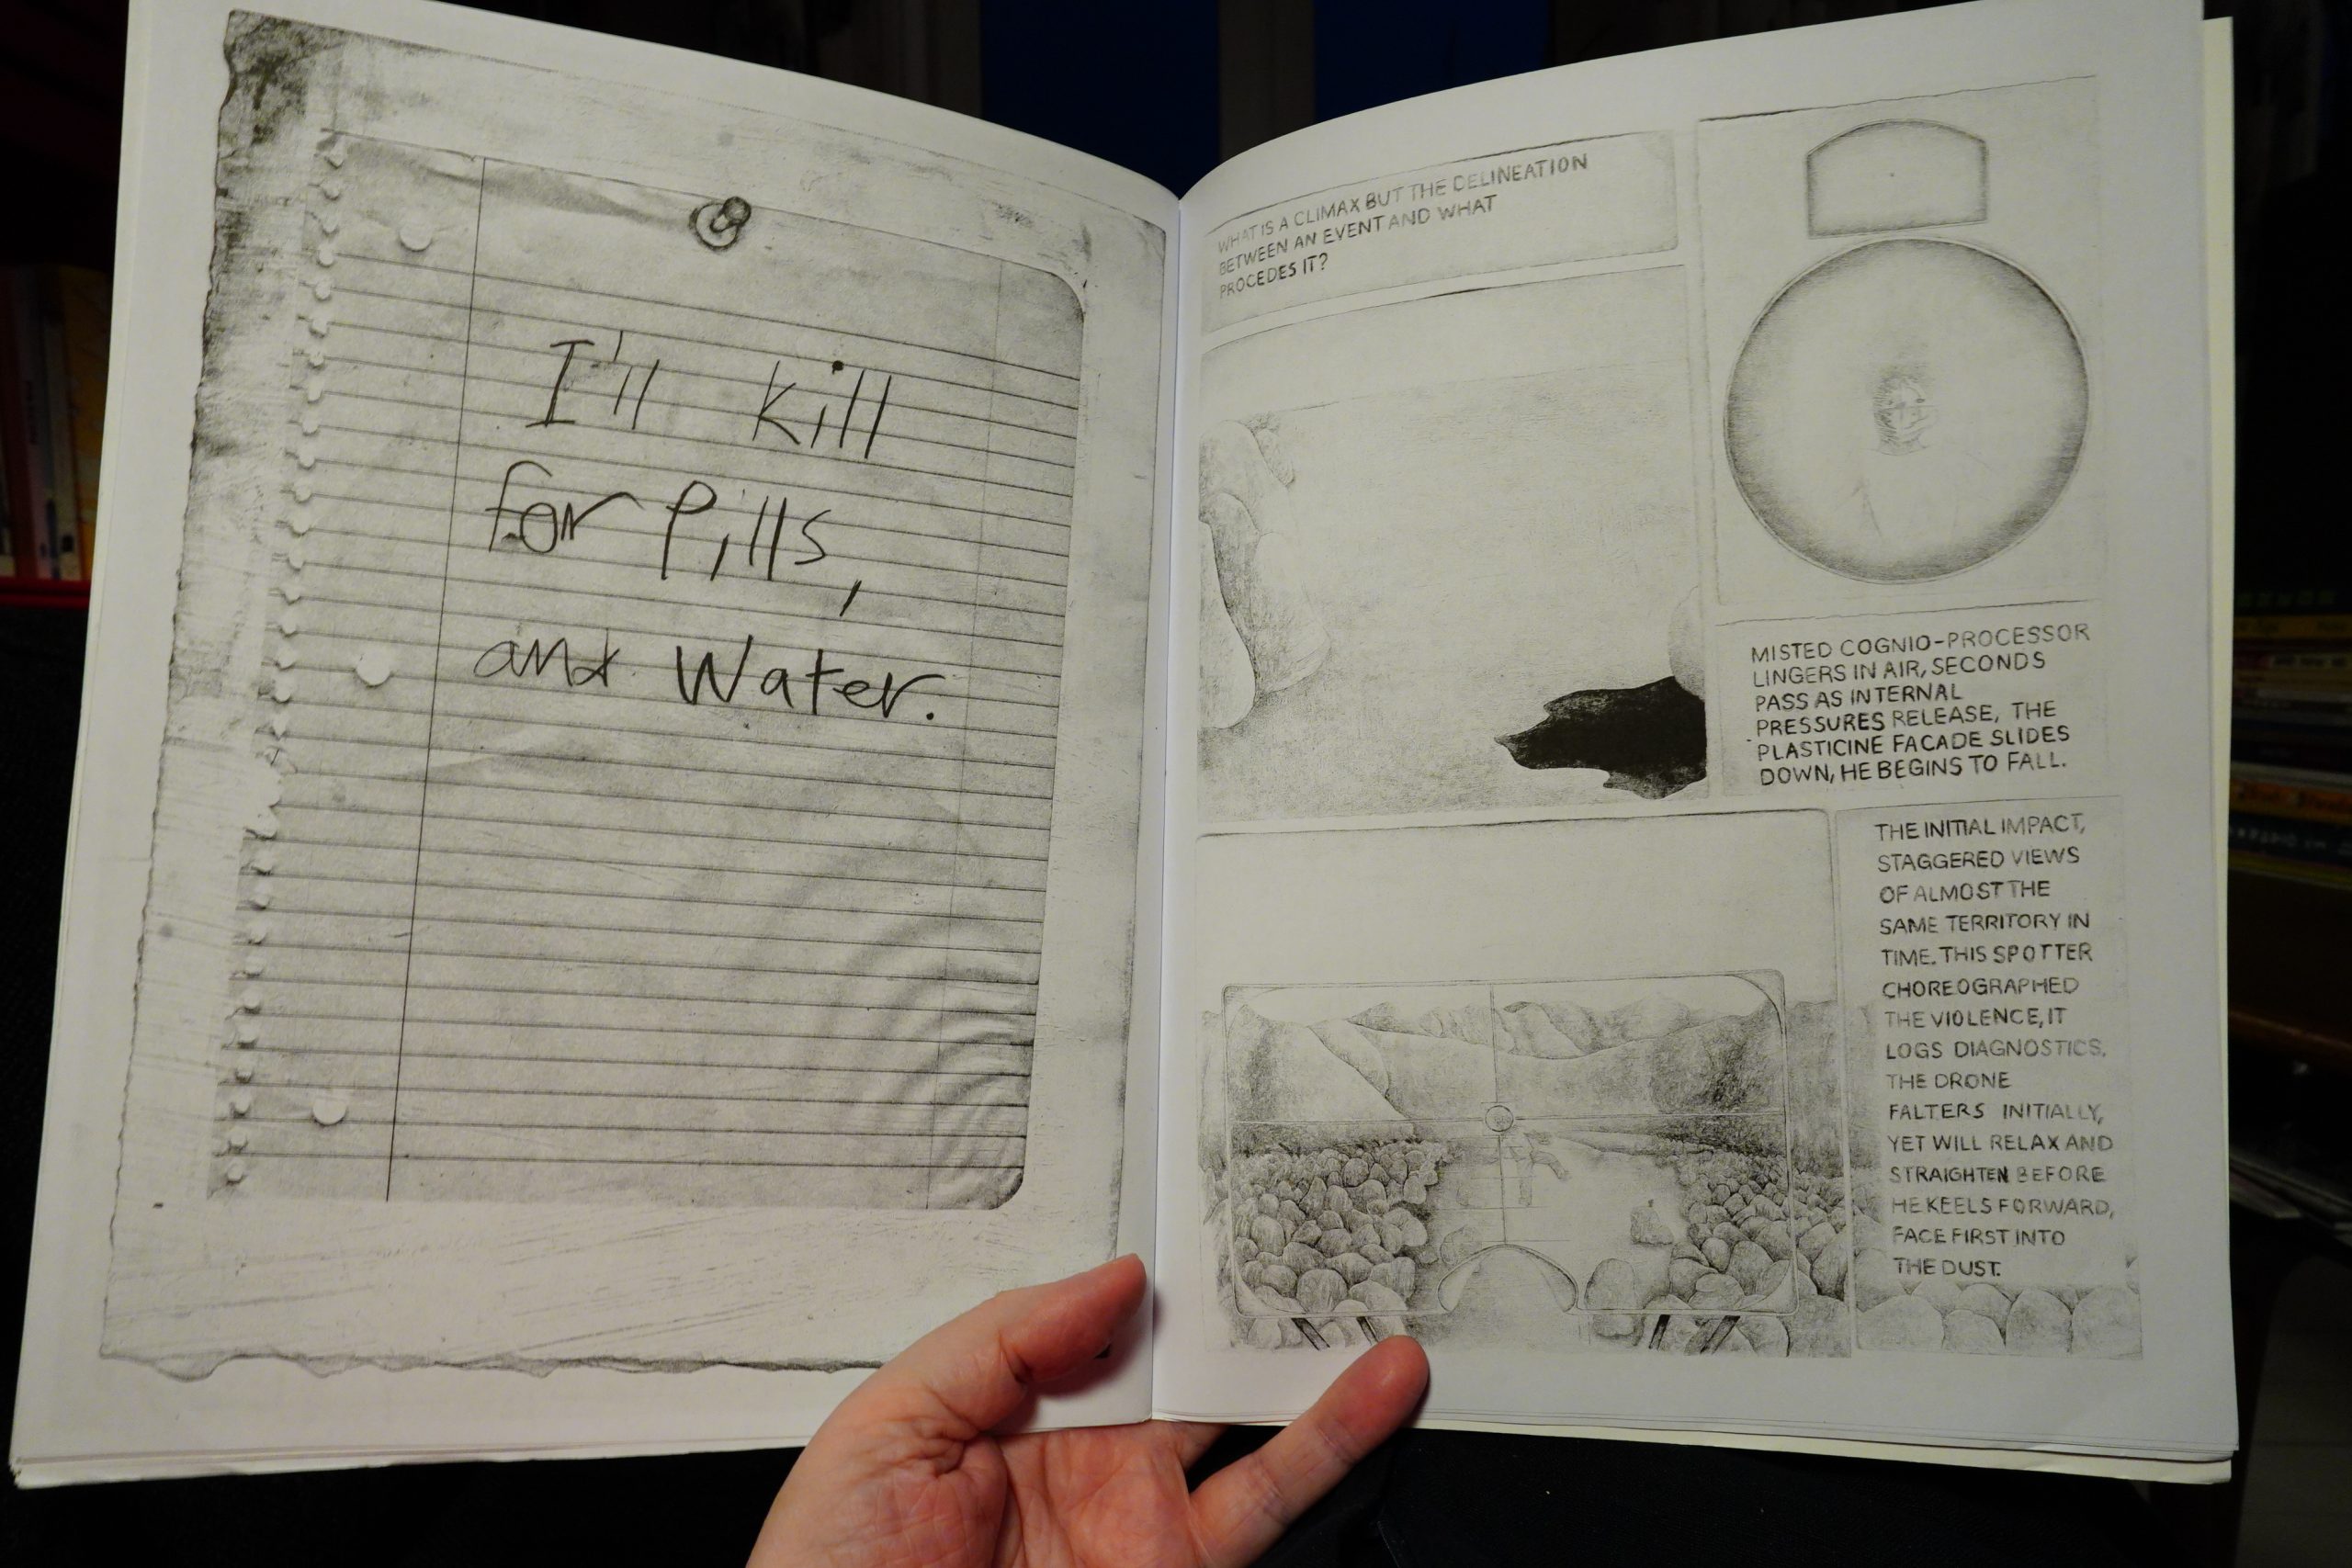 I'll kill
for Pills,
and Water.
WHAT IS A CLIMAX BUT THE DELINEATION
BETWEEN AN EVENT AND WHAT
PROCEDES IT?
MISTED COGNIO-PROCESSOR
LINGERS IN AIR, SECONDS
PASS AS INTERNAL
PRESSURES RELEASE, THE
PLASTICINE FACADE SLIDES
DOWN, HE BEGINS TO FALL.
THE INITIAL IMPACT,
STAGGERED VIEWS
OF ALMOST THE
SAME TERRITORY IN
TIME. THIS SPOTTER
CHOREOGRAPHED
THE VIOLENCE, IT
LOGS DIAGNOSTICS.
THE DRONE
FALTERS INITIALLY,
YET WILL RELAX AND
STRAIGHTEN BEFORE
HE KEELS FORWARD,
FACE FIRST INTO
THE DUST.